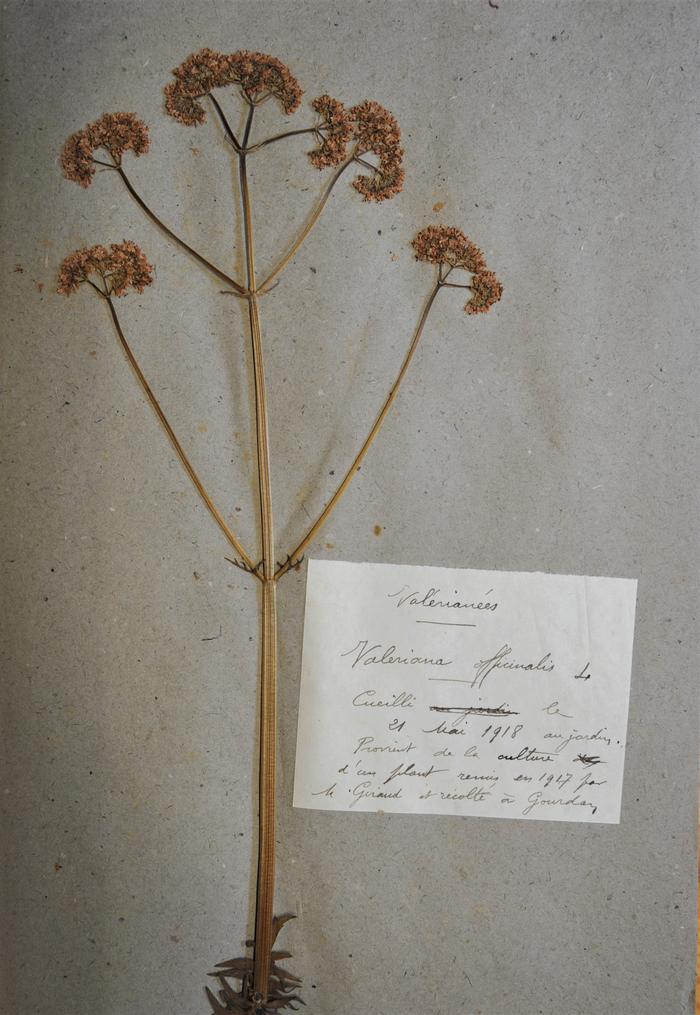 Valérianées
Valeriana officinalis L
Cueilli au jardin le
21 Mai 1918 au jardin.
Provient de la culture
d'un plant remis en 1917 par
M. Giraud et récolté à Gourdan